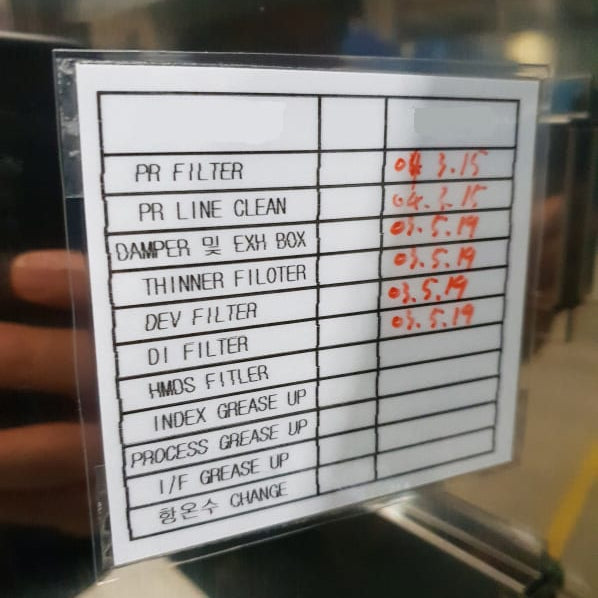 PR FILTER 04 3.15
PR LINE CLEAN 04.3.15
DAMPER 및 EXH BOX 03.5.19
THINNER FILOTER 03.5.19
DEV FILTER 03.5.19
DI FILTER 03.5.19
HMDS FITLER
INDEX GREASE UP
PROCESS GREASE UP
I/F GREASE UP
항온수 CHANGE